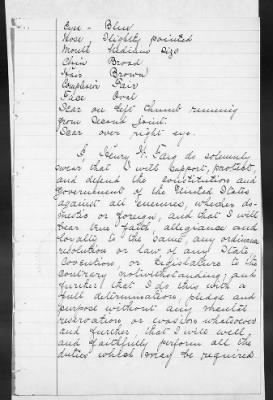 Eyes - Blue
Nose - Slightly pointed
Mouth Medium Size
Chin Broad
Hair Brown
Complexion Fair
Face Oval
Scar on left thumb running
from Second Joint.
Scar over right eye.
I, Henry H. do solemnly
swear that I will support, protect,
and defend the constitution and
government of the United States
against all enemies, whether do-
mestic or foreign, and that I will
bear true faith, allegiance and
loyalty to the same, any ordinance
resolution or law of any State,
Convention, or Legislature to the
contrary notwithstanding; and
further that I do this with a
full determination, pledge and
purpose without any mental
reservation, or evasion whatsoever
and further, that I will well,
and faithfully perform all the
duties which may be required